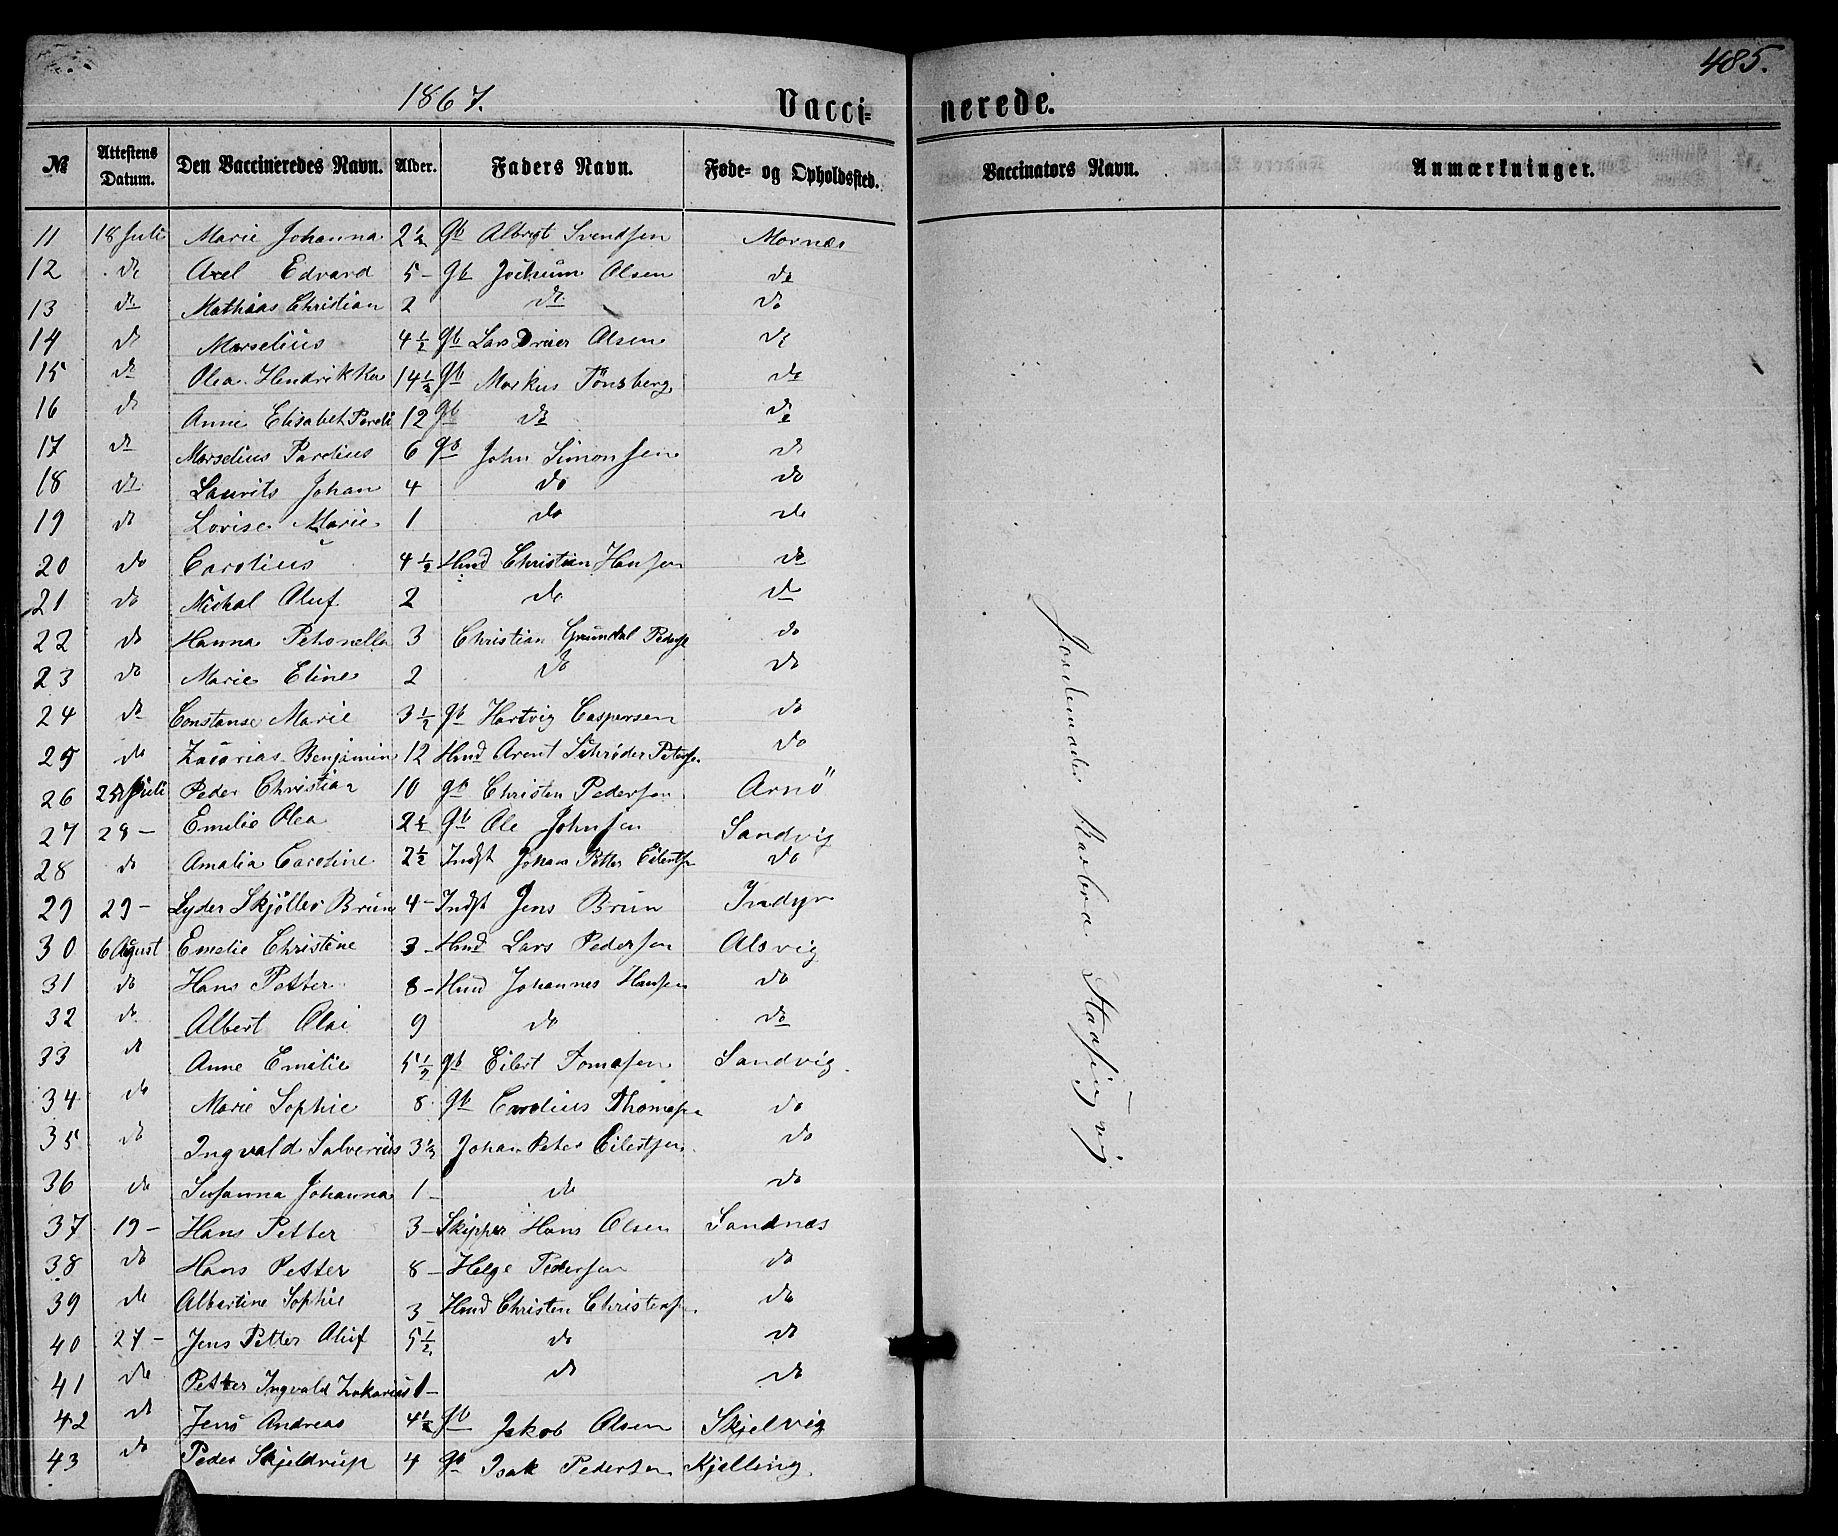 1867.
Vacci=
nerede.
485.
№ Attestens Datum. Den Vaccineredes Navn. Alder. Faders Navn. Føde- og Opholdssted. Vaccinators Navn. Anmærkninger.
11 18 Juli Marie Johanna 2½ Gb Albrigt Svendsen Mornæs
12 do Axel Edvard 5 - Gb Jochum Olsen do
13 do Mathias Christian 2 do do
14 do Marselius 4½ Gb Lars Olsen do
15 do Olea Hendrikke 14½ Gb Markus Tönsberg do
16 do Anne Elisabet 12 Gb do do
17 do Marselius Parelius 6 Gb John Simonsen do
18 do Laurits Johan 4 do do
19 do Lovise Marie 1 do do
20 do Carolius 4½ Hmd Christian Hansen do
21 do Mickal Oluf 2 do do
22 do Hanna Petronella 3 Christian Grundal Peders do
23 do Marie Eline 2 do do
24 do Constanse Marie 3½ Gb Hartvig Caspersen do
25 do Zacarias Benjamin 12 Hmd Arent Schrøder Peters do
26 25 Juli Peder Christian 10 Gb Christen Pedersen Arnö
27 29 - Emilie Olea 2½ Gb Ole Johnsen Sandvig
28 do Amalia Caroline 2½ Indst Johan Petter Eilerts do
29 29 - Lyder Skjöller Brun 4 - Indst Jens Brun Indyr
30 6 August Emelie Christine 3 - Hmd Lars Pedersen Alsvig
31 do Hans Petter 8 - Hmd Johannes Hansen do
32 do Albert Olai 9 do do
33 do Anne Emilie 5½ Gb Eilert Tomasen Sandvig
34 do Marie Sophie 8 Gb Carolius Thomasen do
35 do Ingvald Salverius 3½ Johan Peter Eilertsen do
36 do Susanna Johanna 1 - do do
37 19 - Hans Petter 3 - Skipper Hans Olsen Sandnæs
38 do Hans Petter 8 - Helge Pedersen do
39 do Albertine Sophie 3 Hmd Christen Christens do
40 27 - Jens Petter Oluf 5½ do do
41 do Petter Ingvald Zakarias 1 - do do
42 do Jens Andreas 4½ Gb Jakob Olsen Skjelvig
43 do Peder Skjeldrup 4 Gb Isak Pedersen Kjelling
Jordemoder Barbra